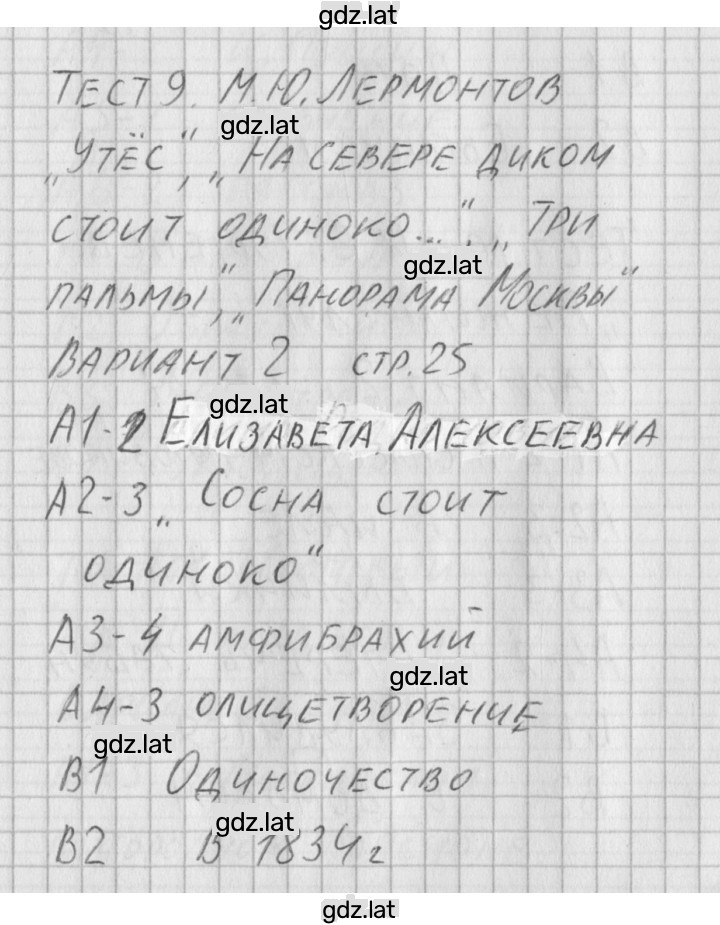 gdz.lat
ТЕСТ 9. М.Ю. ЛЕРМОНТОВ
gdz.lat
„УТЁС“, „НА СЕВЕРЕ ДИКОМ
СТОИТ ОДИНОКО...“. „ТРИ
gdz.lat
ПАЛЬМЫ“, „ПАНОРАМА МОСКВЫ“
ВАРИАНТ 2 СТР. 25
gdz.lat
А1-2 ЕЛИЗАВЕТА АЛЕКСЕЕВНА
А2-3 „СОСНА СТОИТ
ОДИНОКО“
А3-4 АМФИБРАХИЙ
gdz.lat
А4-3 ОЛИЦЕТВОРЕНИЕ
gdz.lat
В1 ОДИНОЧЕСТВО
gdz.lat
В2 В 1834 г
gdz.lat